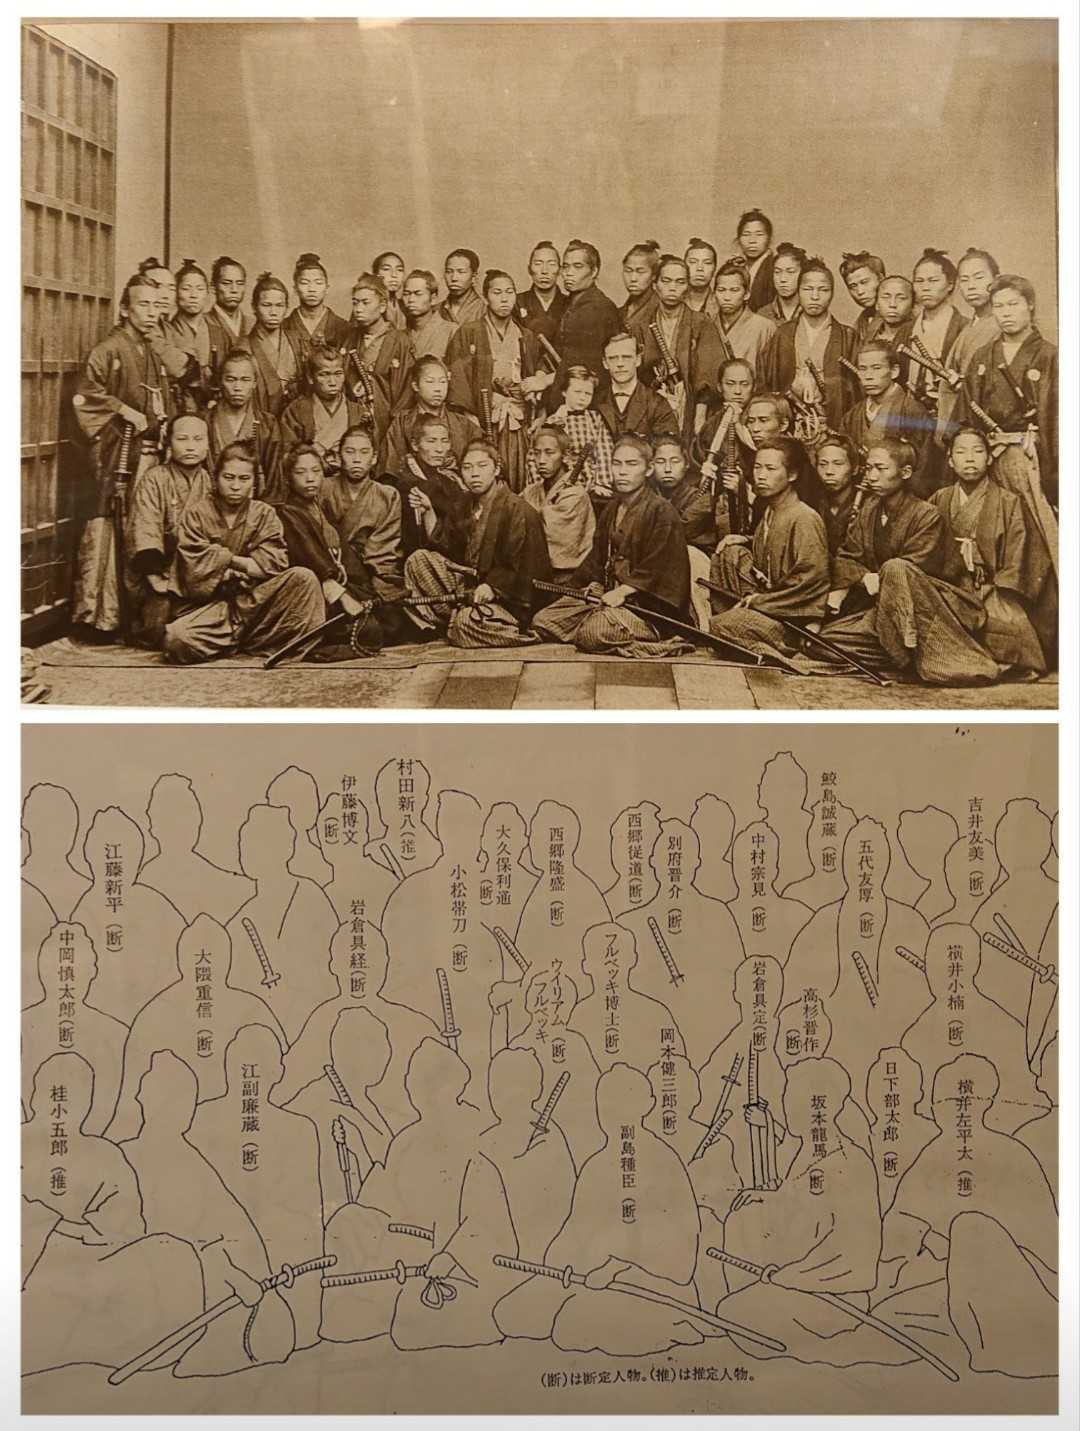 伊藤博文(断)
村田新八(推)
鮫島誠蔵(断)
吉井友美(断)
江藤新平(断)
大久保利通(断)
西郷隆盛(断)
西郷従道(断)
別府晋介(断)
中村宗見(断)
五代友厚(断)
小松帯刀(断)
岩倉具経(断)
中岡慎太郎(断)
大隈重信(断)
ウイリアム
フルベッキ(断)
フルベッキ博士(断)
岩倉具定(断)
高杉晋作(断)
横井小楠(断)
岡本健三郎(断)
桂小五郎(推)
江副廉蔵(断)
副島種臣(断)
坂本龍馬(断)
日下部太郎(断)
横井左平太(推)
(断)は断定人物。(推)は推定人物。